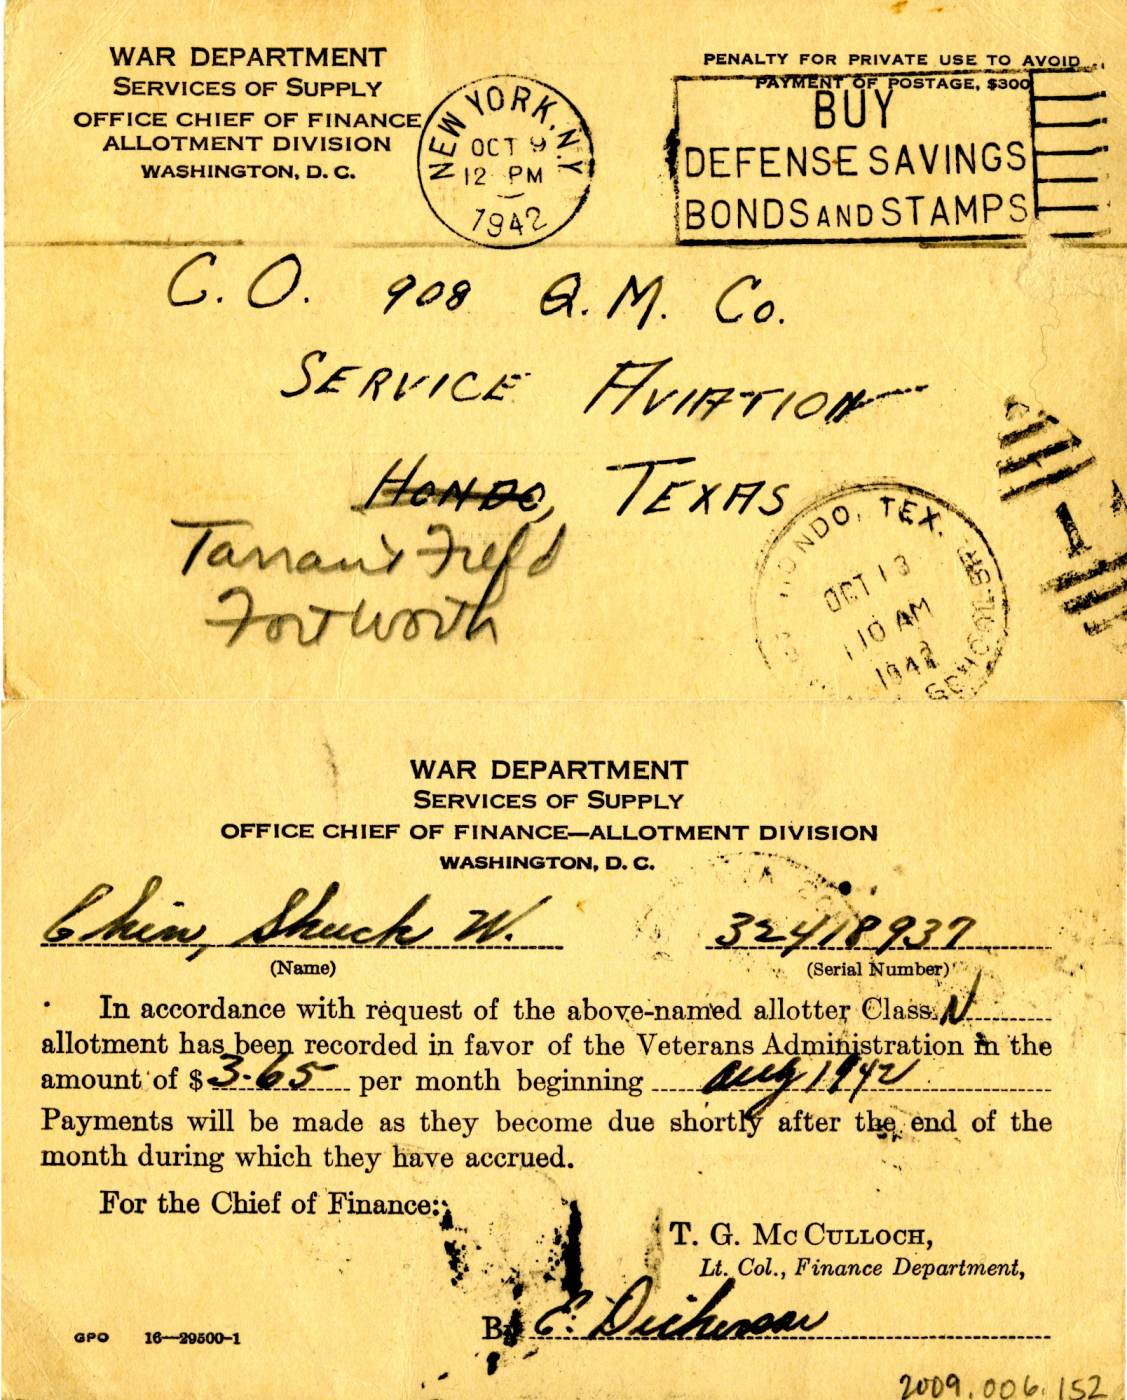 WAR DEPARTMENT
SERVICES OF SUPPLY
OFFICE CHIEF OF FINANCE
ALLOTMENT DIVISION
WASHINGTON, D. C.
NEW YORK, N.Y.
OCT 9
12 PM
1942
PENALTY FOR PRIVATE USE TO AVOID
PAYMENT OF POSTAGE, $300
BUY
DEFENSE SAVINGS
BONDS AND STAMPS
C. O. 908 Q. M. Co.
SERVICE AVIATION
HONDO, TEXAS
Tarrant Field
Fort Worth
HONDO, TEX.
OCT 13
1942
1
WAR DEPARTMENT
SERVICES OF SUPPLY
OFFICE CHIEF OF FINANCE—ALLOTMENT DIVISION
WASHINGTON, D. C.
Chin, Shuck W. 32418937
(Name) (Serial Number)
In accordance with request of the above-named allotter Class N
allotment has been recorded in favor of the Veterans Administration in the
amount of $3.65 per month beginning Aug 1942
Payments will be made as they become due shortly after the end of the
month during which they have accrued.
For the Chief of Finance:
T. G. McCULLOCH,
Lt. Col., Finance Department,
By E. Dickerson
GPO 16—29500-1
2009.006.152